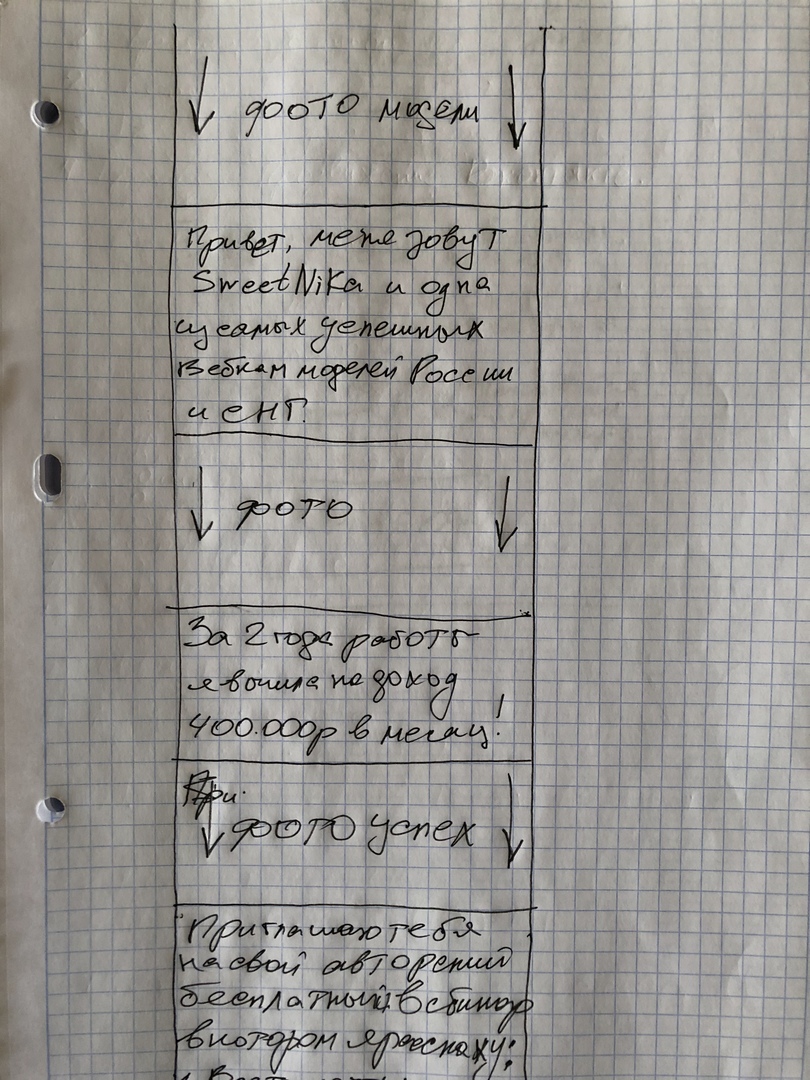 фото модели
Привет, меня зовут
SweetNika и одна
из самых успешных
Вебкам моделей России
и СНГ.
фото
За 2 года работы
я вышла на доход
400.000р в месяц!
При
фото успех
Приглашаю тебя
на свой авторский
бесплатный вебинар
в котором я расскажу: